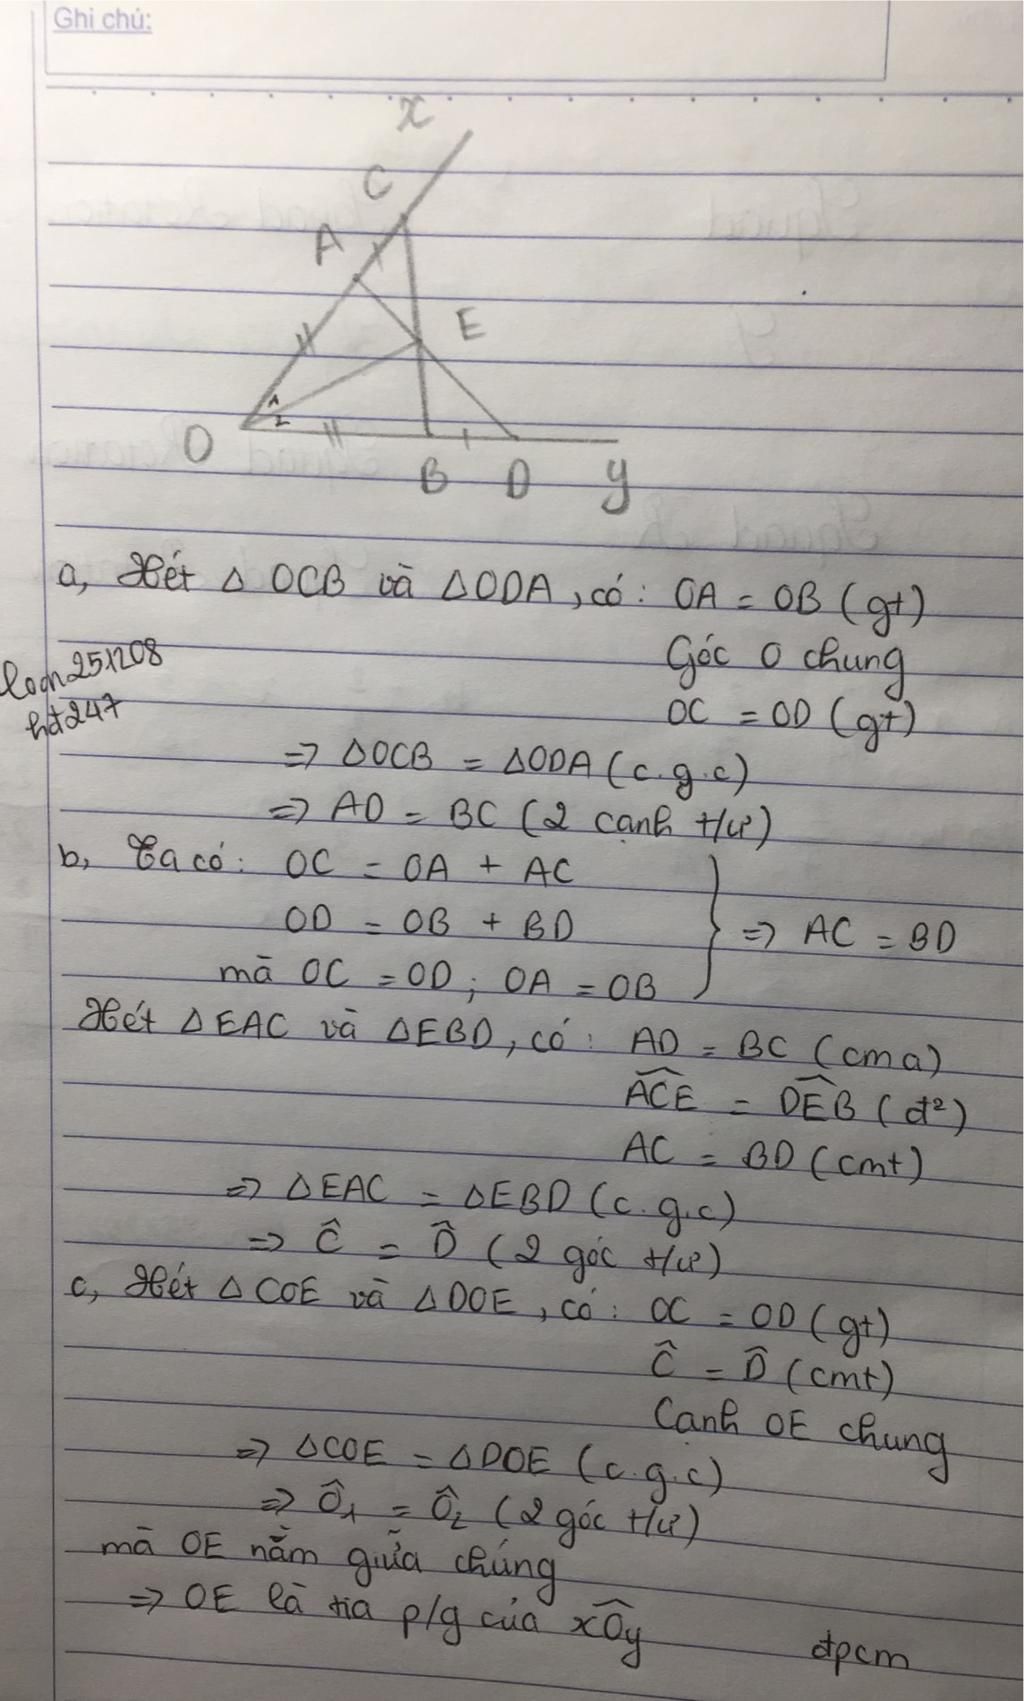 Ghi chú:
x
C
A
E
1
2
O
B D y
a, Xét △ OCB và △ODA, có: OA = OB (gt)
Góc O chung
loan251208
hd247
OC = OD (gt)
=> △OCB = △ODA (c.g.c)
=> AD = BC (2 cạnh t/ư)
b, Ta có: OC = OA + AC
OD = OB + BD } => AC = BD
mà OC = OD; OA = OB
Xét △EAC và △EBD, có: AD = BC (cma)
ACE^ = DEB^ (đ²)
AC = BD (cmt)
=> △EAC = △EBD (c.g.c)
=> Ĉ = D̂ (2 góc t/ư)
c, Xét △COE và △DOE, có: OC = OD (gt)
Ĉ = D̂ (cmt)
Cạnh OE chung
=> △COE = △DOE (c.g.c)
=> Ô₁ = Ô₂ (2 góc t/ư)
mà OE nằm giữa chúng
=> OE là tia p/g của xÔy
đpcm